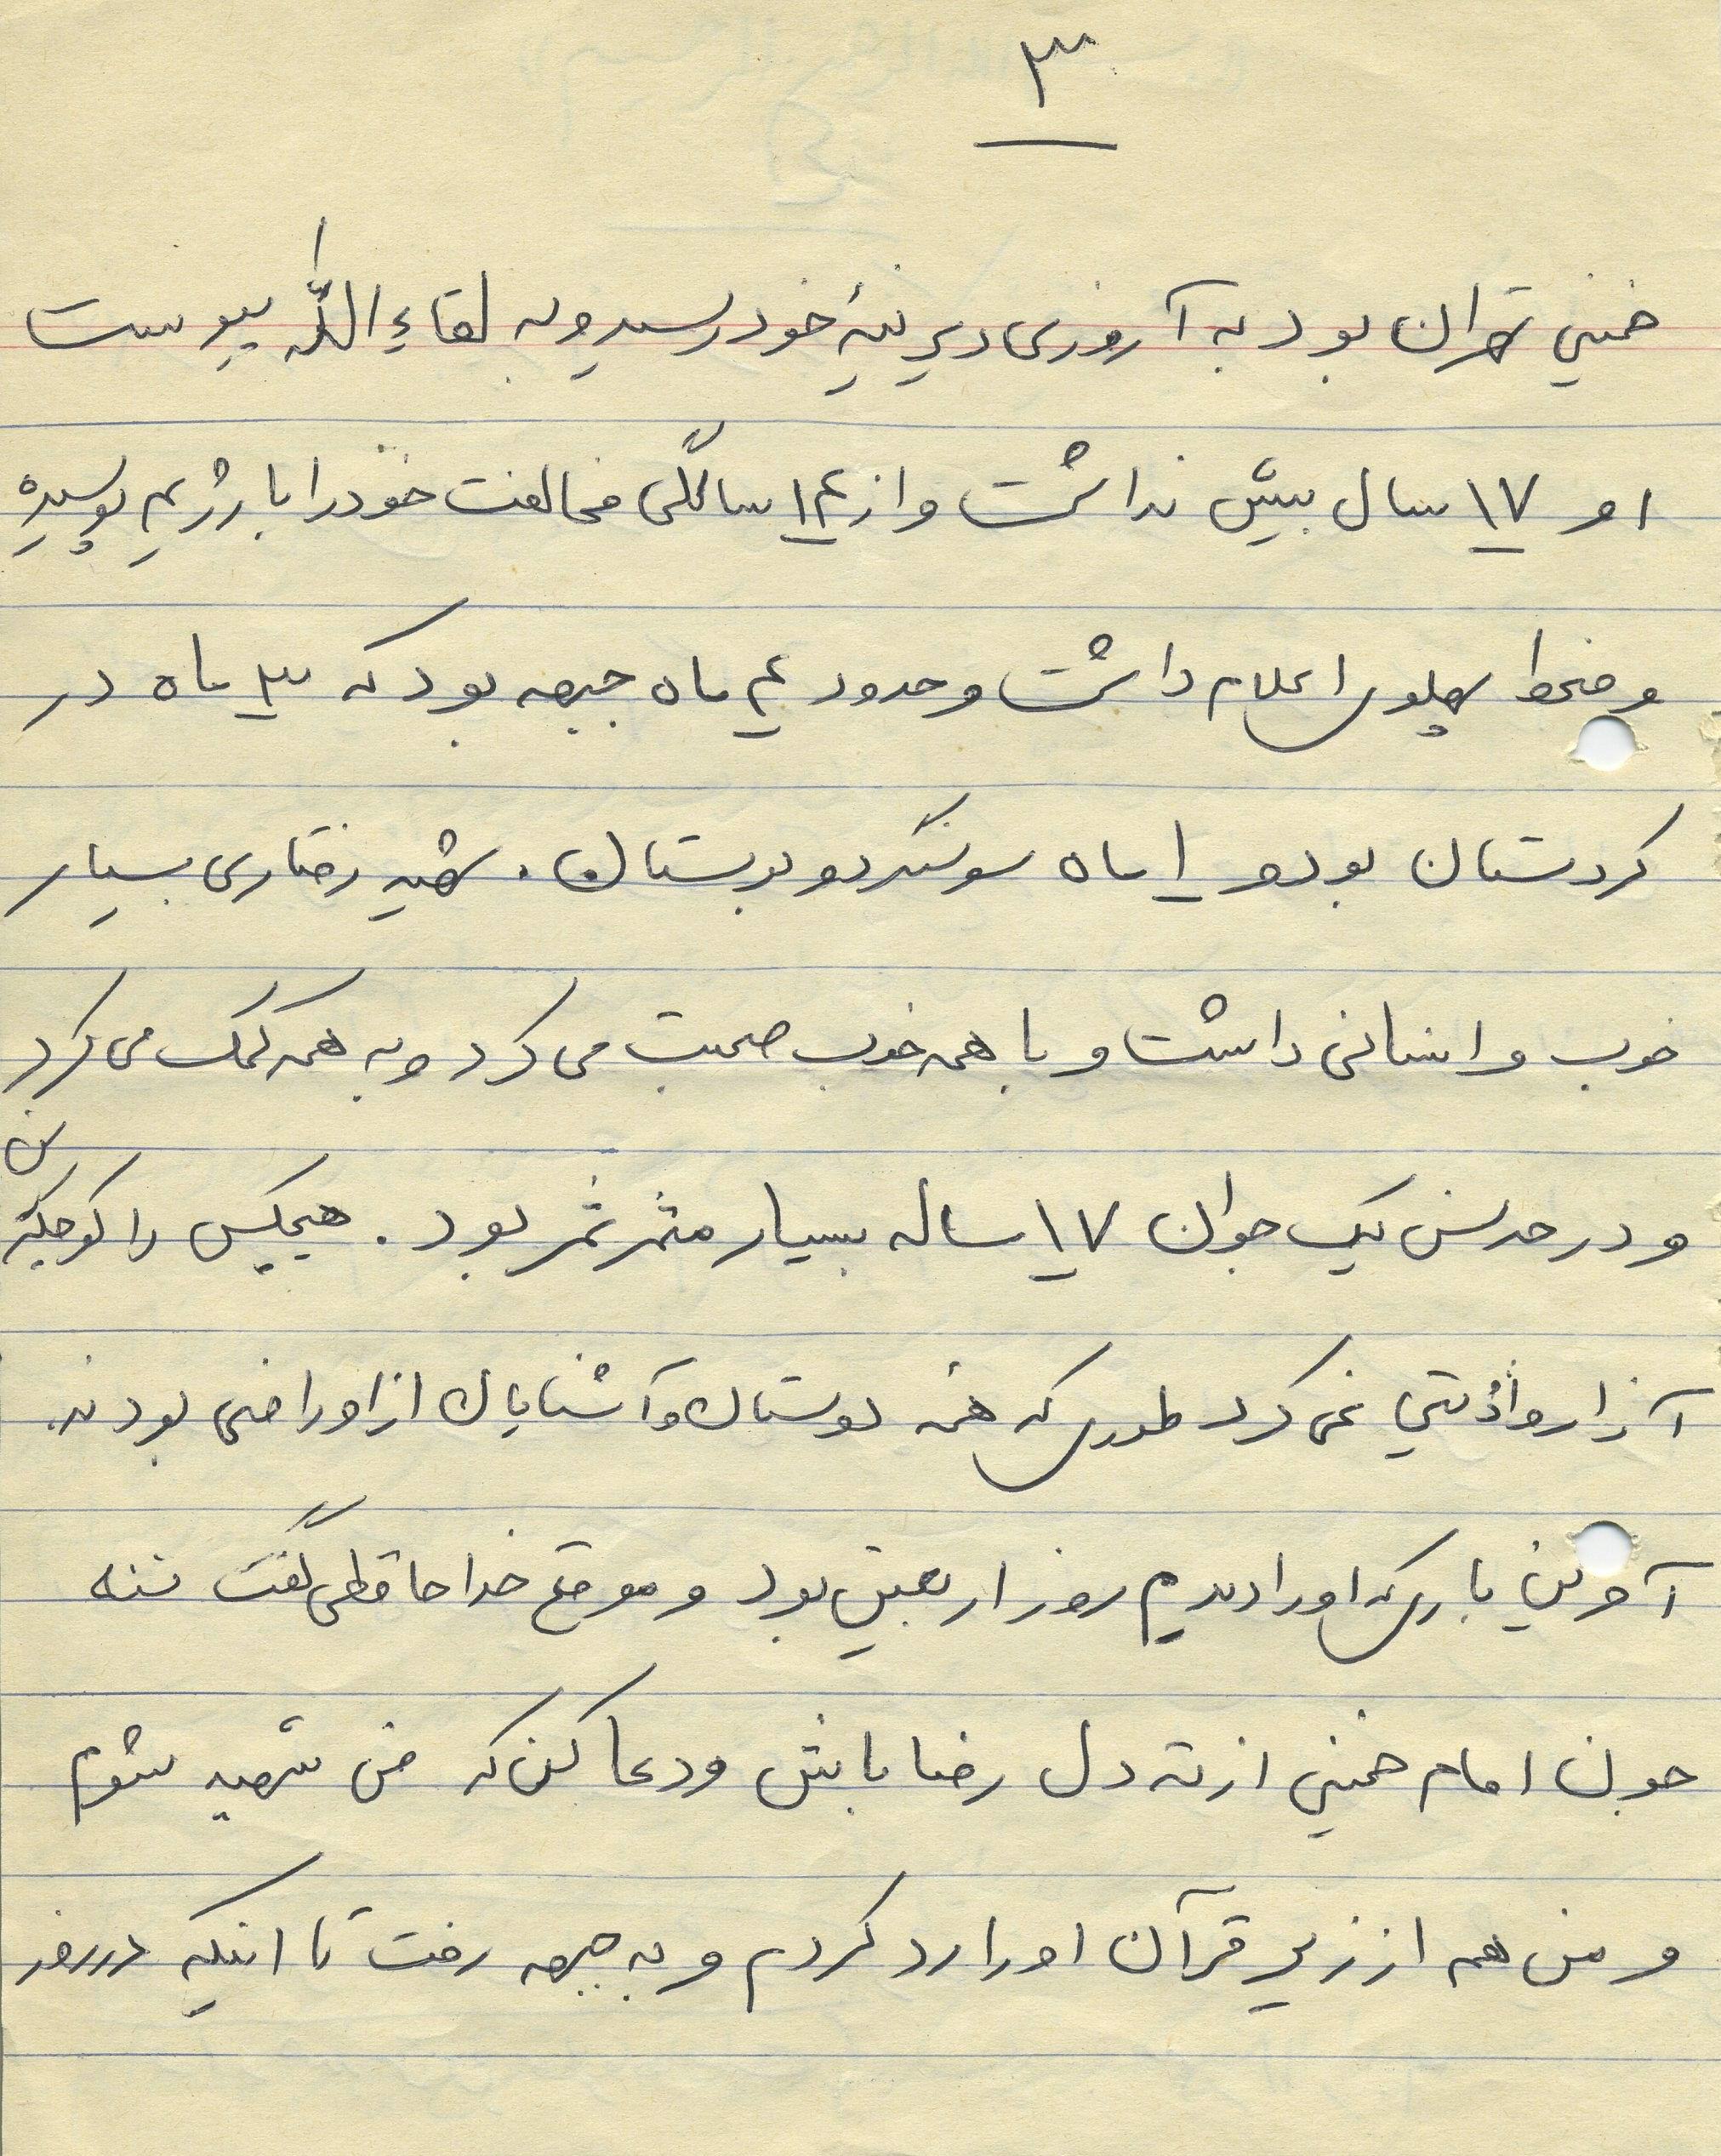 ۳
خمینی تهران بود به آروزی دیرینهٔ خود رسید و به لقاءِ اللّه پیوست
او ۱۷ سال بیش نداشت و از ۱۴ سالگی مخالفت خود را با رژیم پوسیده
و منحط پهلوی اعلام داشت و حدود ۴ ماه جبهه بود که ۳ ماه در
کردستان بود و ۱ ماه سوسنگرد و بستان. شهید رفتاری بسیار
خوب و انسانی داشت و با همه خوب صحبت می کرد و به همه کمک می کرد
و در حد سن یک جوان ۱۷ ساله بسیار مثمر ثمر بود. هیچکس را کوچکترین
آزار و اذیتی نمی کرد طوری که همه دوستان و آشنایان از او راضی بودند.
آخرین باری که او را دیدیم روز اربعین بود و موقع خداحافظی گفت ننه
جون امام خمینی از ته دل رضا باش و دعا کن که من شهید شوم
و من هم از زیر قرآن او را رد کردم و به جبهه رفت تا اینکه در روز